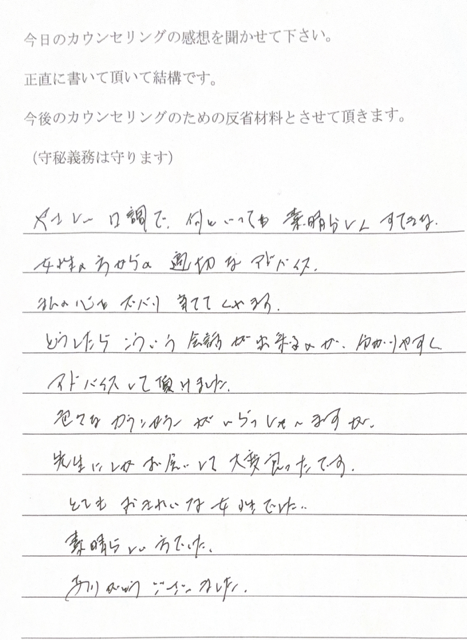 今日のカウンセリングの感想を聞かせて下さい。
正直に書いて頂いて結構です。
今後のカウンセリングのための反省材料とさせて頂きます。
（守秘義務は守ります）
やさしい口調で、何といっても素晴らしく すてきな、
女性の方からの適切なアドバイス。
私の心をズバリ当ててくれます。
どうしたらこういう会話が出来るのか、分かりやすく
アドバイスして頂けました。
色々なカウンセラーがいらっしゃいますが、
先生に お会いして大変良かったです。
とてもおきれいな女性でした。
素晴らしい方でした。
ありがとうございました。